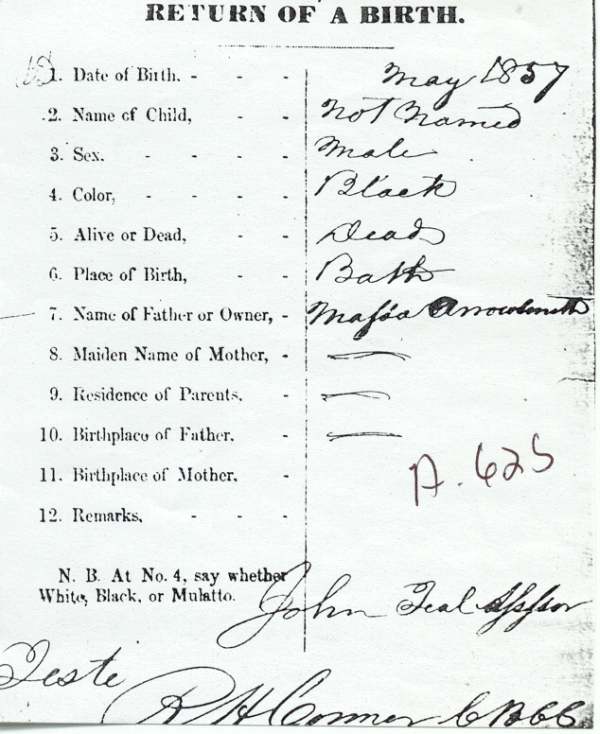 RETURN OF A BIRTH.
1. Date of Birth. - - - May 1857
2. Name of Child, - - Not Named
3. Sex. - - - - Male
4. Color, - - - - Black
5. Alive or Dead, - - Dead
6. Place of Birth, - - Bath
7. Name of Father or Owner, - Massa Arrowsmith
8. Maiden Name of Mother, - —
9. Residence of Parents. - —
10. Birthplace of Father. - —
11. Birthplace of Mother. -
12. Remarks, - - -
A. 625
N. B. At No. 4, say whether
White, Black, or Mulatto.
John Teal Assessor
Teste
R H Conner C B C C